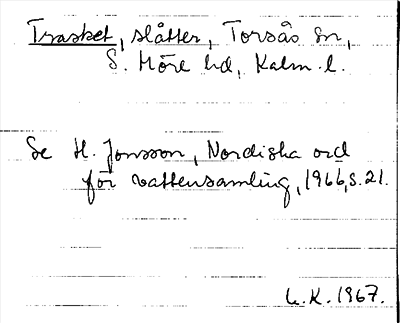 Trasket, slåtter, Torsås sn,
S. Möre hd, Kalm. l.
Se H. Jonsson, Nordiska ord
för vattensamling, 1966, s. 21.
U.K. 1967.